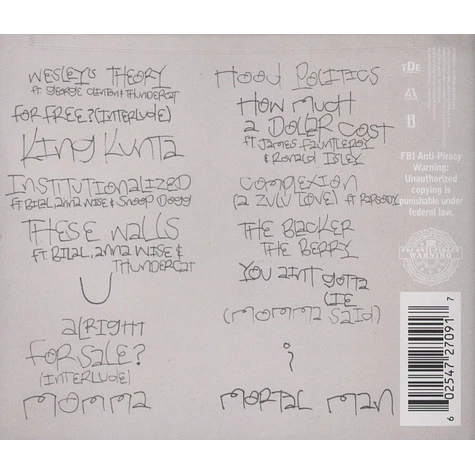 WESLEY'S THEORY
FT GEORGE CLINTON & THUNDERCAT
FOR FREE? (INTERLUDE)
KING KUNTA
INSTITUTIONALIZED
FT BILAL, ANNA WISE & SNOOP DOGG
THESE WALLS
FT. BILAL, ANNA WISE &
THUNDERCAT
U
ALRIGHT
FOR SALE?
(INTERLUDE)
MOMMA
HOOD POLITICS
HOW MUCH
A DOLLAR COST
FT JAMES FAUNTLEROY
& RONALD ISLEY
COMPLEXION
(A ZULU LOVE) FT RAPSODY
THE BLACKER
THE BERRY
YOU AINT GOTTA
LIE
(MOMMA SAID)
i
MORTAL MAN
TDE
FBI Anti-Piracy
Warning:
Unauthorized
copying is
punishable under
federal law.
FBI ANTI-PIRACY
WARNING
6 02547 27091 7